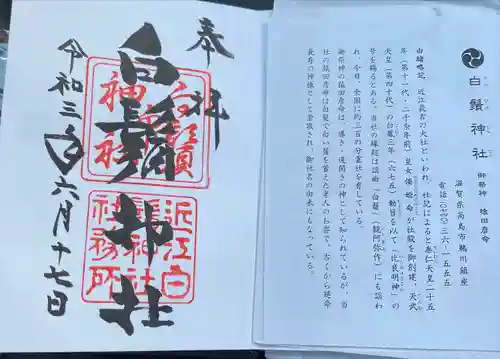 奉拝
白鬚神社
令和三年六月十七日
近江白
鬚神社
社務所
白鬚神社
御祭神 猿田彦命
滋賀県高島市鵜川鎮座
電話(0740)三六-一五五五
由緒略記 近江最古の大社といわれ、社記によると垂仁天皇二十五
年(第十一代・二千余年前)皇女倭姫命が社殿を御創建、天武
天皇(第四十代)の白鳳三年(六七五)勅旨を以て「比良明神」の
号を賜るとある。当社の縁起は謡曲「白鬚」(観阿弥作)にも謡わ
れ、今日、全国に約三百の分霊社を有している。
御祭神の猿田彦命は、導き・道開きの神として知られているが、当
社の猿田彦命は白髪で白い鬚を蓄えた老人のお姿で、古くから延命
長寿の神様として崇敬され、御社名の由来にもなっている。